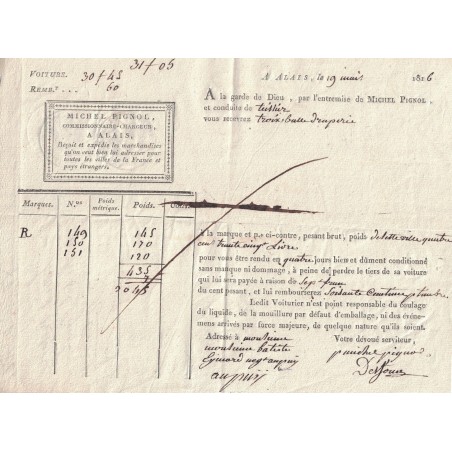 31 + 05
VOITURE. 30 + 45
REMB.t 60
A ALAIS, le 19 mars 1826
MICHEL PIGNOL,
COMMISSIONNAIRE-CHARGEUR,
A ALAIS,
Reçoit et expédie les marchandises
qu'on veut bien lui adresser pour
toutes les villes de la France et
pays étrangers.
A la garde de Dieu, par l'entremise de MICHEL PIGNOL,
et conduite de
vous recevrez trois balle draperie
Marques. N.os Poids métrique. Poids.
R 149 145
150 170
151 120
435
7
3045
à la marque et n.o ci-contre, pesant brut, poids de cette ville quatre
cent trente cinq Livre
pour vous être rendu en quatre jours bien et dûment conditionné
sans manque ni dommage, à peine de perdre le tiers de sa voiture
qui lui sera payée à raison de sept franc
du cent pesant, et lui rembourserez soixante Centimes
Ledit Voiturier n'est point responsable du coulage
du liquide, de la mouillure par défaut d'emballage, ni des événe-
mens arrivés par force majeure, de quelque nature qu'ils soient.
Adressé à monsieur
Votre dévoué serviteur,
monsieur batiste
au puy